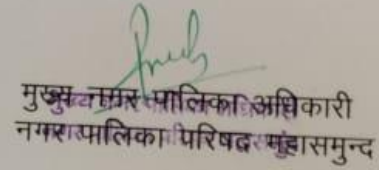 मुख्य नगर पालिका अधिकारी
नगर पालिका परिषद महासमुन्द